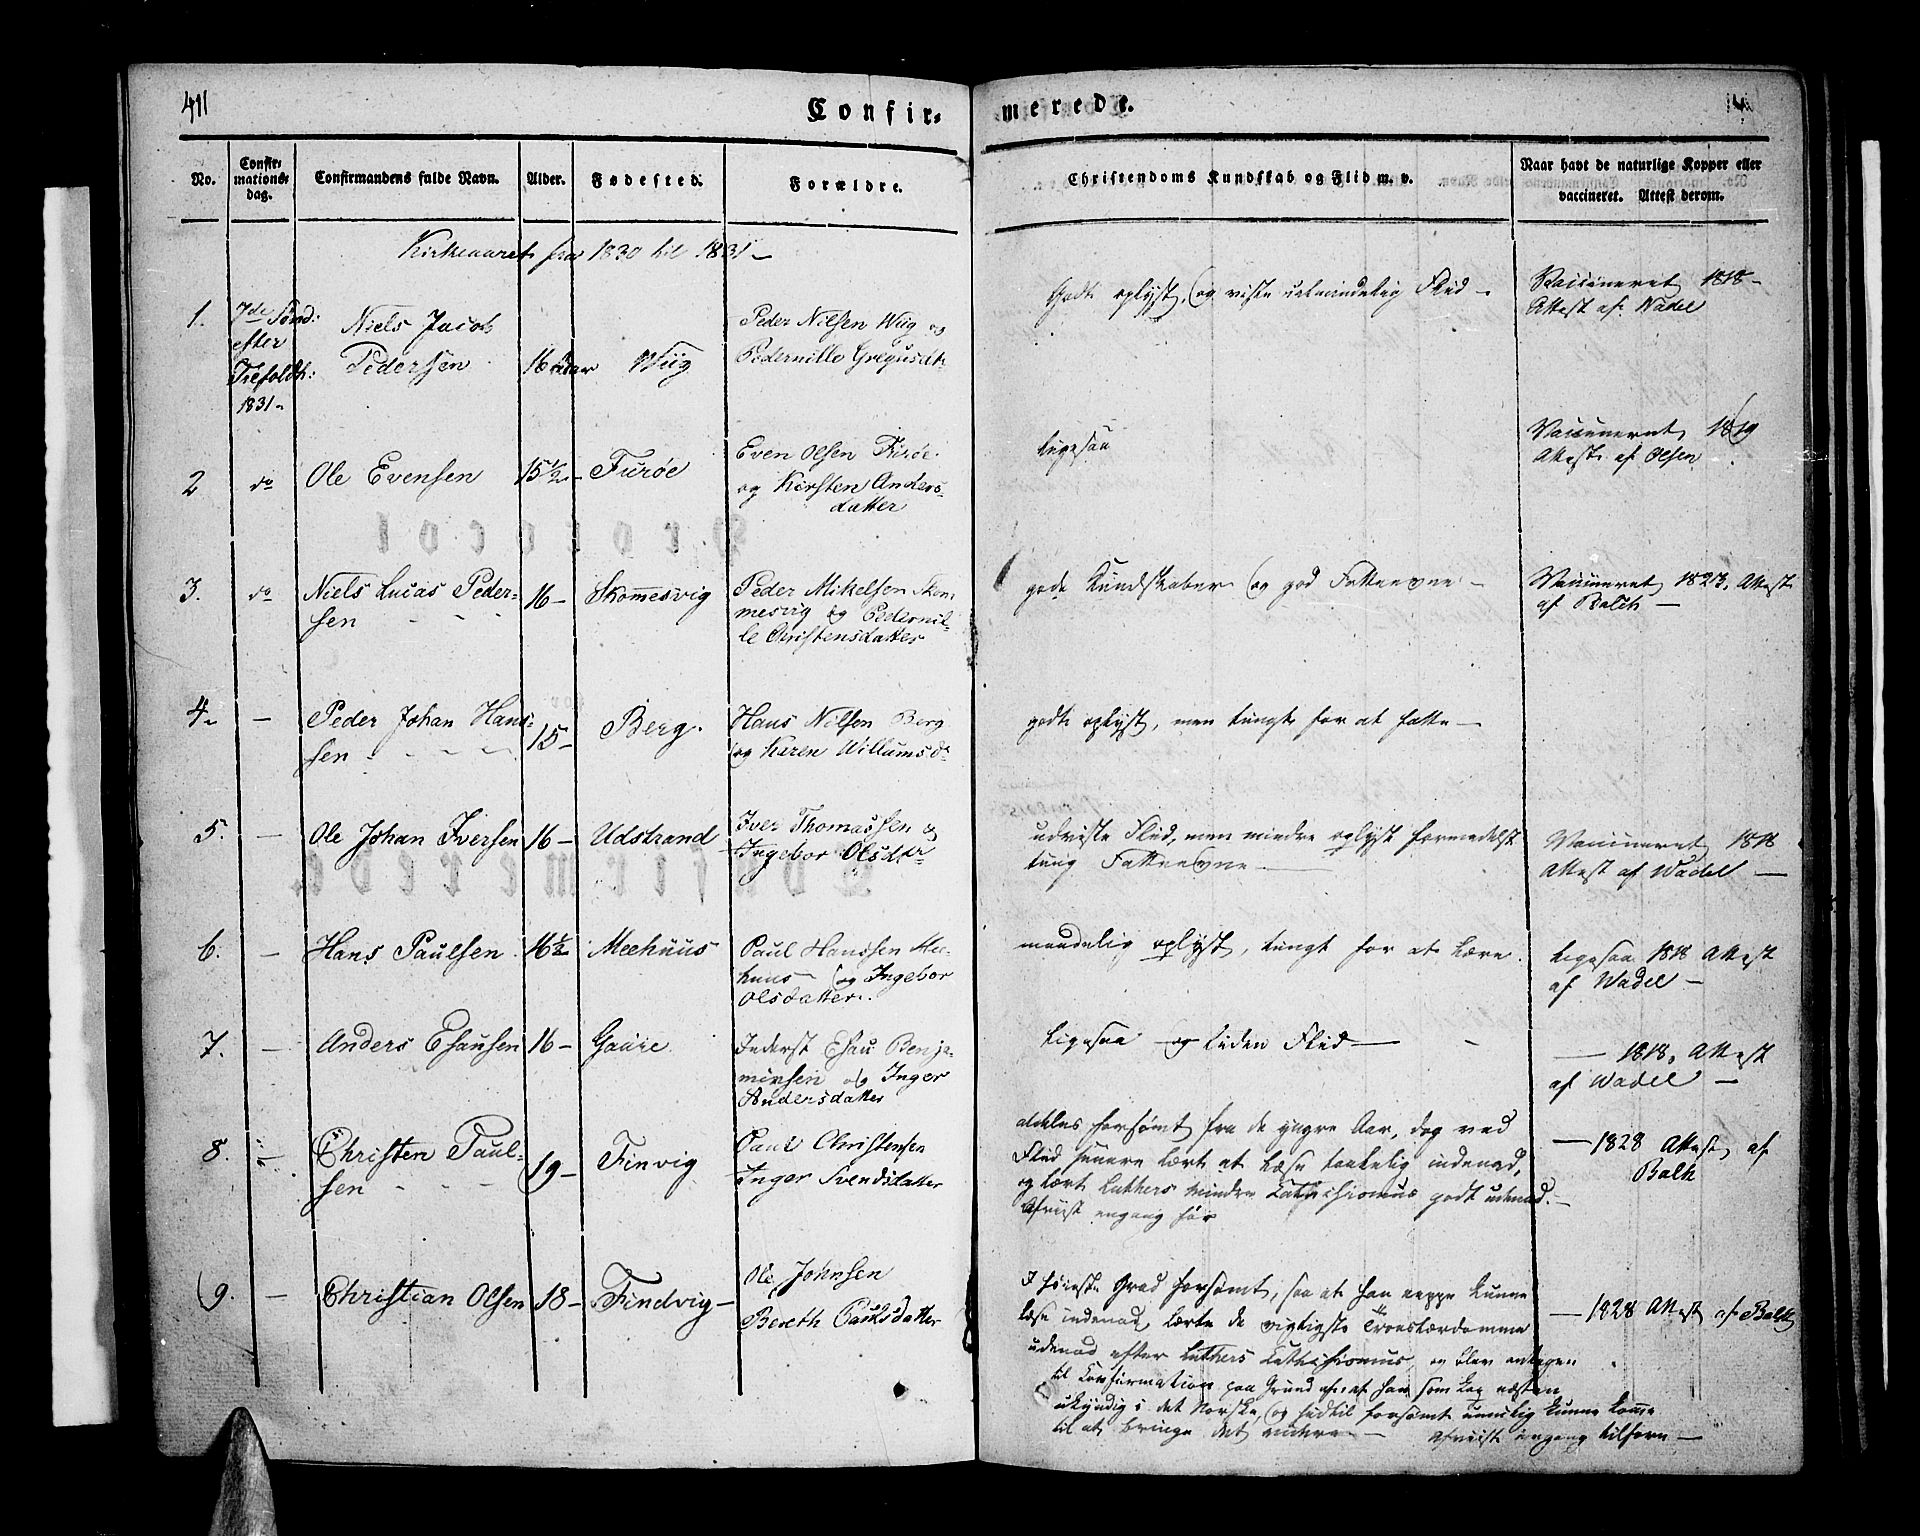 411
Confir-
merede.
No.
Confir-
mations-
dag.
Confirmandens fulde Navn.
Alder.
Fødested.
Forældre.
Christendoms Kundskab og Flid m. v.
Naar havt de naturlige Kopper eller
vaccineret. Attest derom.
Kirkeaaret fra 1830 til 1831 -
1.
7de Sønd:
efter
Trefoldh:
1831-
Niels Jacob
Pedersen
16 Aar
Wiig
Peder Nilsen Wiig og
Pedernille Gregusdt
Godt oplyst, og viste ualmindelig Flid -
Vaccineret 1818-
Attest af Wadel
2
do
Ole Evensen
15 1/2 -
Furøe
Even Olsen Furøe
og Kirsten Anders
datter
Ligesaa
Vaccineret 1819
Attest af Olsen
3.
do
Niels Lucas Peder-
sen - - -
16 -
Skommesvig
Peder Mikelsen Skom
mesvig og Pedernil-
le Christensdatter
gode Kundskaber og god Fatteevne -
Vaccineret 1823. Attest
af Balch -
4-
-
Peder Johan Han-
sen - - - -
15 -
Berg.
Hans Nilsen Berg
og Karen Willumsdr
godt oplyst, men tungt for at fatte -
5.
-
Ole Johan Iversen
16 -
Udstrand
Iver Thomassen &
Ingebor Olsdtr
udviste Flid, men mindre oplyst formedelst
tung Fatteevne -
Vaccineret 1818
Attest af Wadel -
6.
-
Hans Paulsen
16 1/2
Meehuus
Paul Hanssen Mee-
huus - og Ingebor
Olsdatter.
maadelig oplyst, tungt for at lære.
Ligesaa 1818 Attest
af Wadel -
7.
-
Anders Esausen
16 -
Gaare
Inderst Esau Benja-
minsen og Inger
Andersdatter
Ligesaa og liden Flid -
- 1818. Attest
af Wadel -
8.
-
Christen Paul-
sen - - -
19 -
Finvig
Paul Christensen
Inger Svendsdatter
aldeles forsømt fra de yngre Aar, dog ved
Flid senere lært at læse taalelig indenad,
og lært Luthers mindre Cathechismus godt udenad. -
Afviist engang før
- 1828 Attest af
Balch
9.
-
Christian Olsen
18 -
Findvig -
Ole Johnsen
Bereth Paulsdatter
I høieste Grad forsømt, saa at han neppe kunne
læse indenad, lærte de vigtigste Troeslærdomme
udenad efter Luthers Cathechismus, og blev antagen
til Confirmation paa Grund af, at han som Lap næsten
ukyndig i det Norske, og hidtil forsømt umulig kunne komme
til at bringe det videre - afviist engang tilforn -
- 1828 Attest af Balch